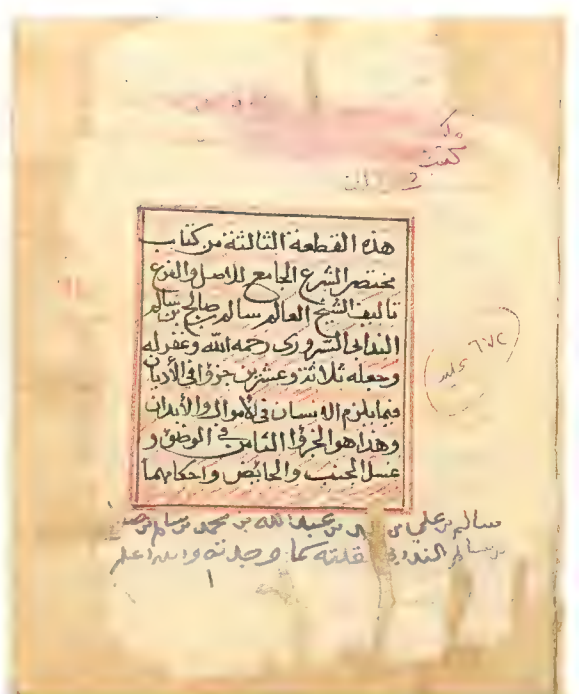 مكتبة
هذه القطعة الثالثة من كتاب
مختصر الشرع الجامع للاصل والفرع
تاليف الشيخ العالم سالم بن صالح بن سالم
الندابي السروري رحمه الله وغفر له
وجعله ثلاثة وعشرين جزؤا في الأديان
فيما يلزم الانسان في الأموال والأبدان
وهذا هو الجزؤ الثامن في الوضوء و
غسل الجنب والحائض واحكامهما
سالم بن علي بن بن عبد الله بن محمد بن سالم بن
بن سالم الندابي نقلته كما وجدته والله اعلم